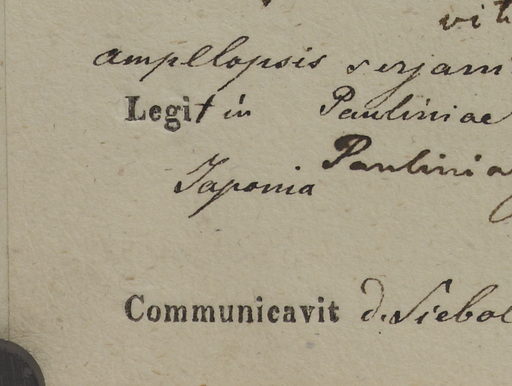 vit
ampellopsis serjani
Legit in Pauliniae
Paulinia
Japonia
Communicavit d. Siebol